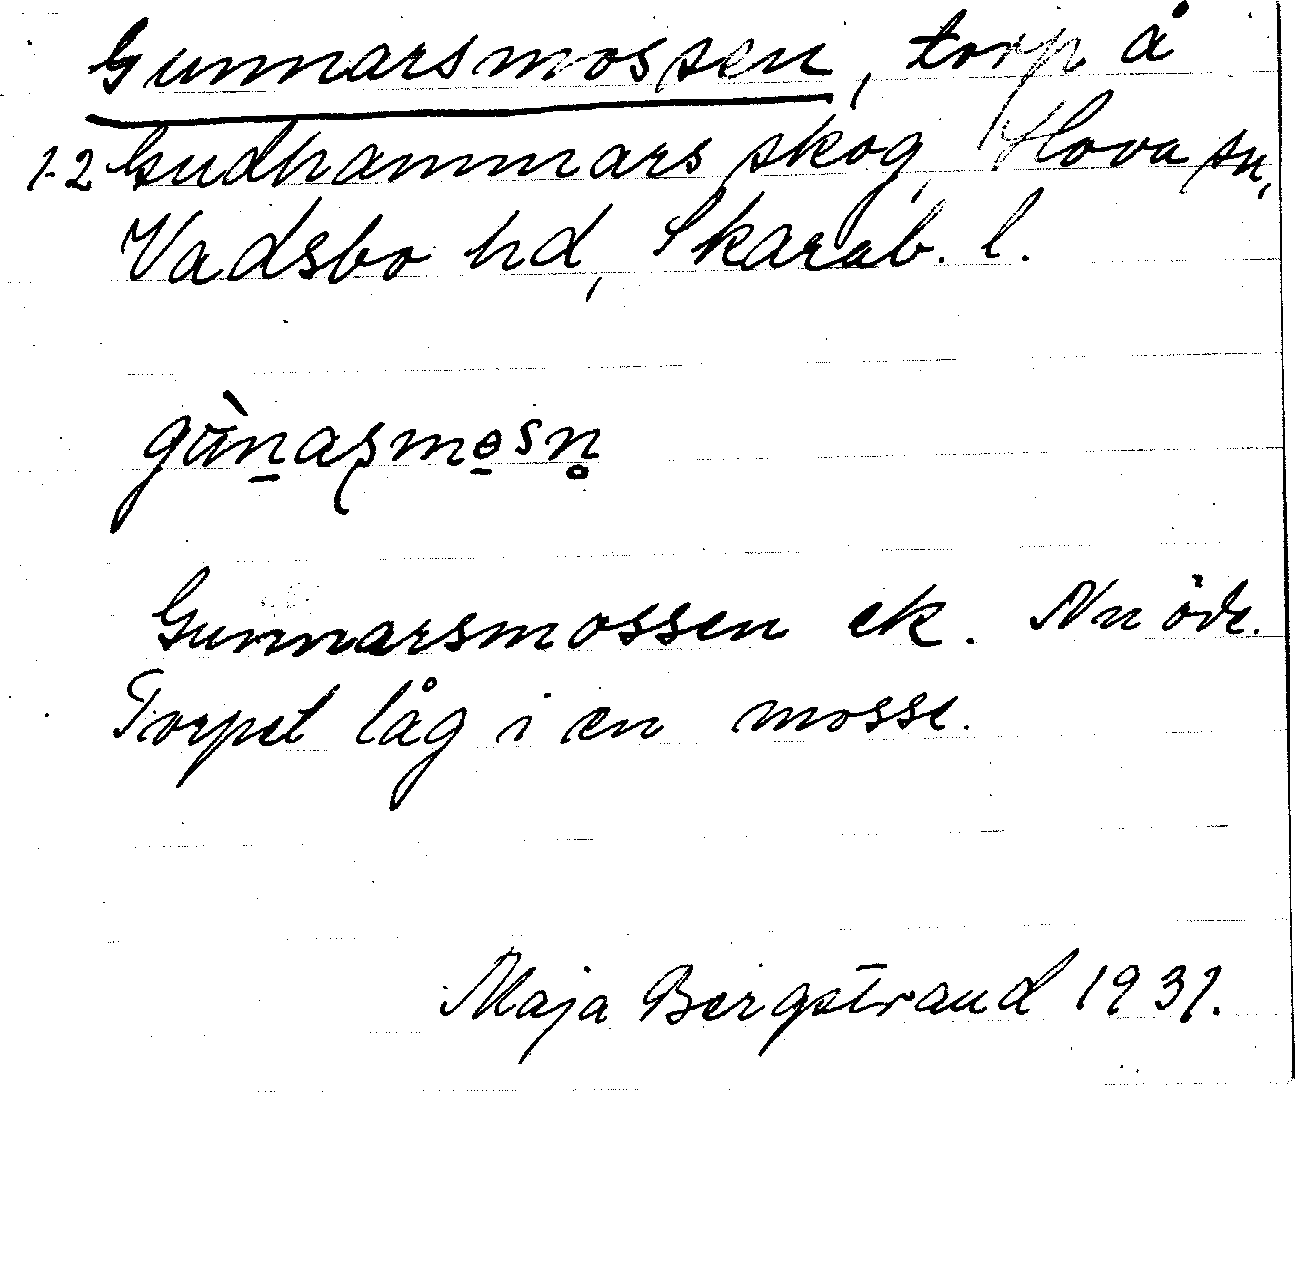 Gunnarsmossen, torp å
1-2 Gudhammars skog, Hova sn,
Vadsbo hd, Skarab. l.
Gunnarsmossen ek. Nu öde.
Torpet låg i en mosse.
Maja Bergstrand 1931.